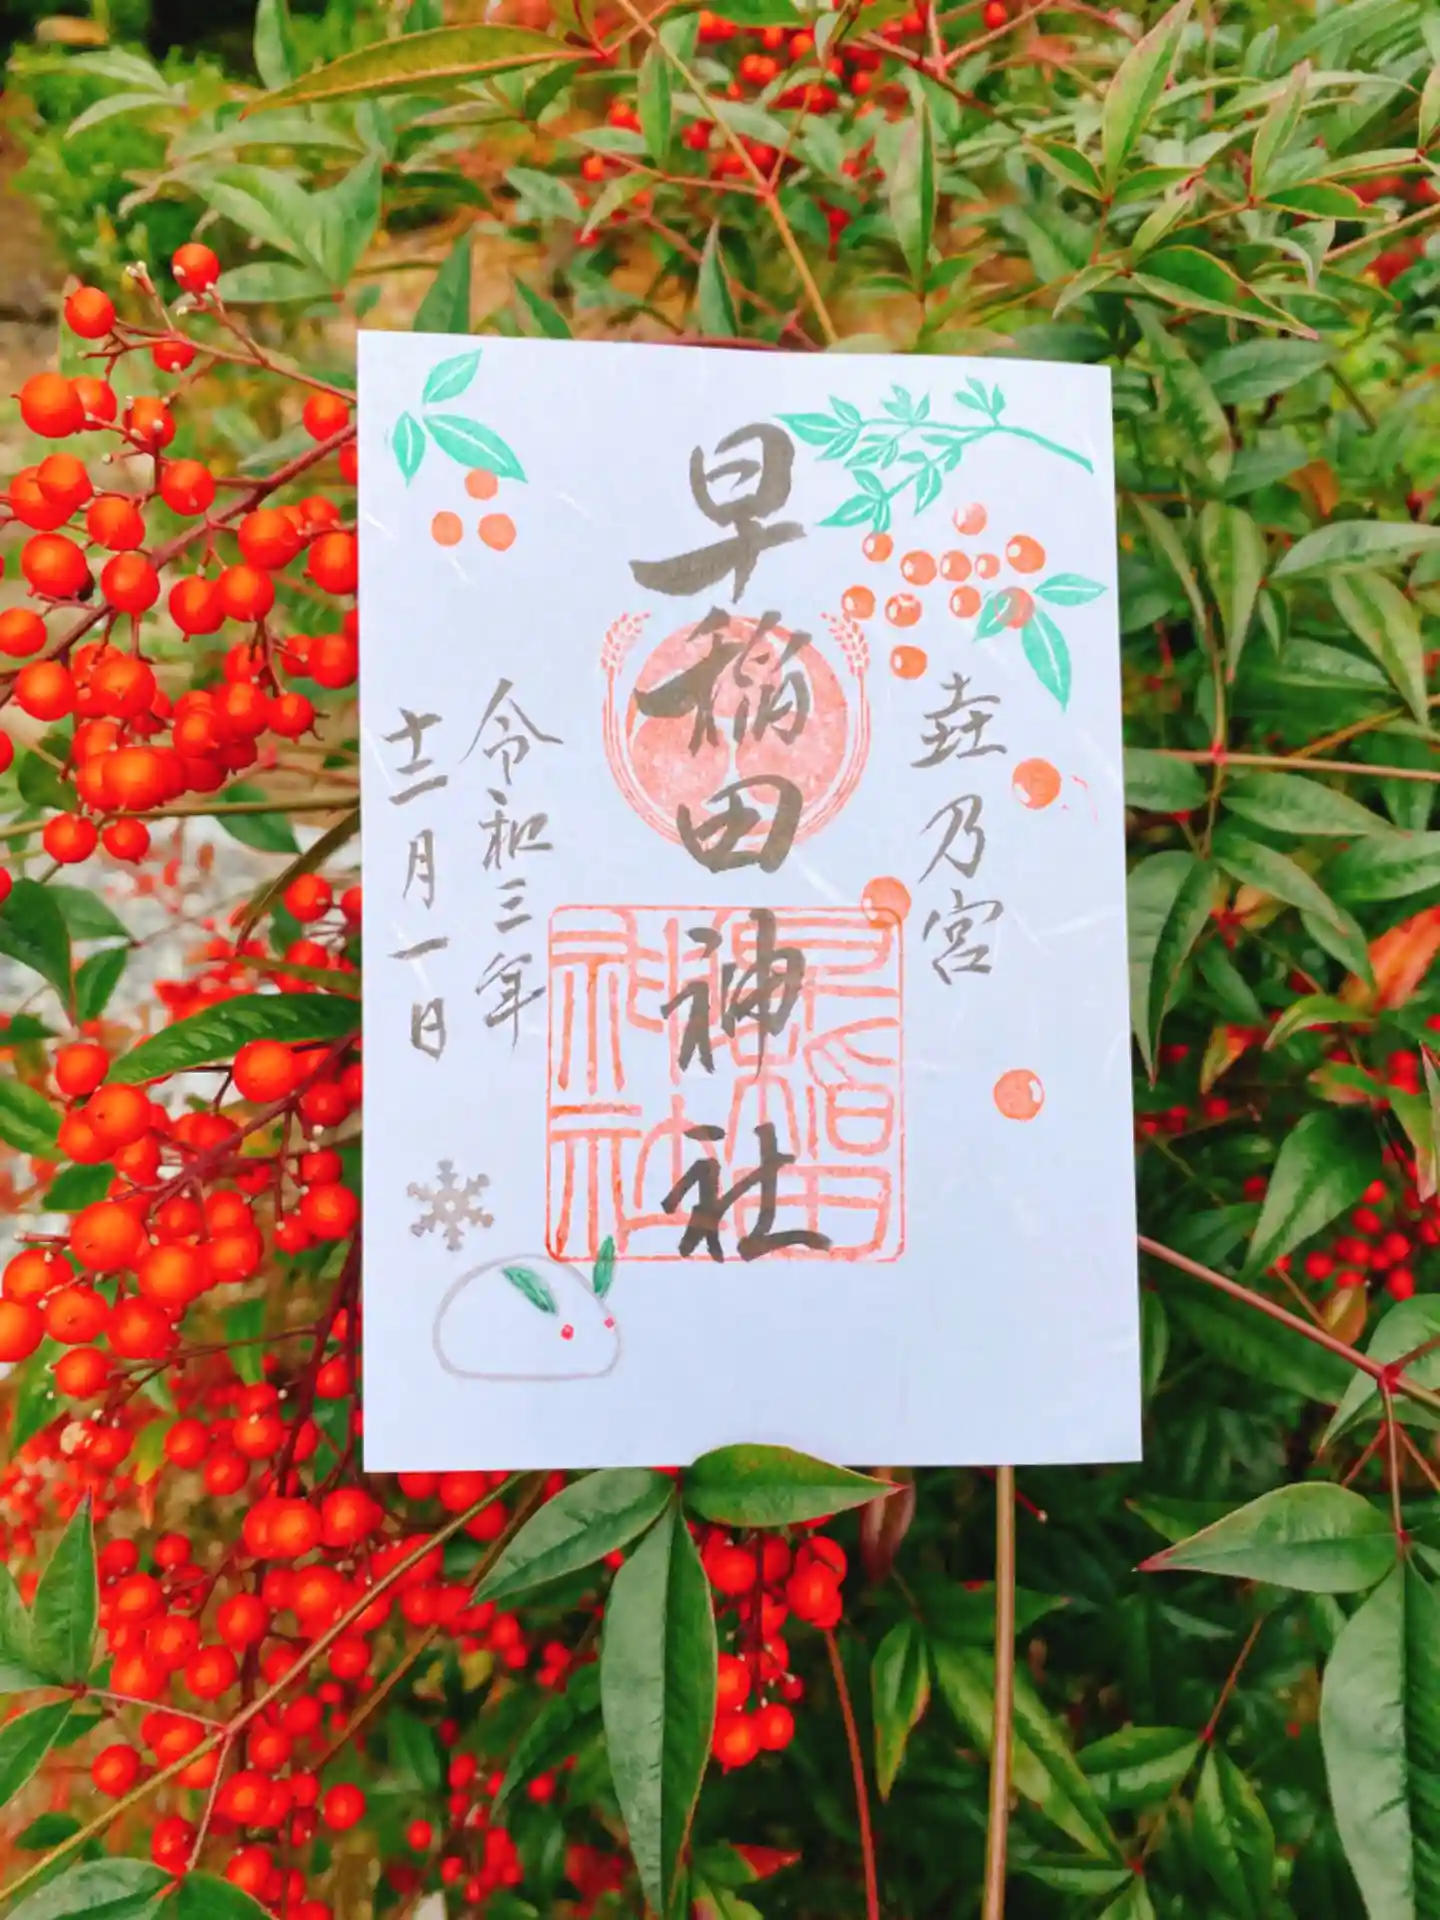 壵乃宮
早稲田神社
令和三年
十二月一日
早稲田
神社